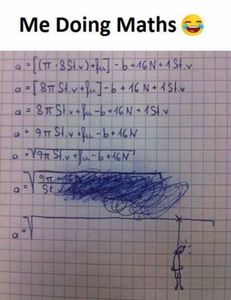 Me Doing Maths 😂
a = [(π · 8St.v) + fu] - b + 16N + 1St.v
a = [8πSt.v + fu] - b + 16N + 1St.v
a = 8πSt.v + fu - b + 16N + 1St.v
a = 9πSt.v + fu - b + 16N
a = √9πSt.v + fu - b + 16N
a = √9π + 16N
St.v
a = √